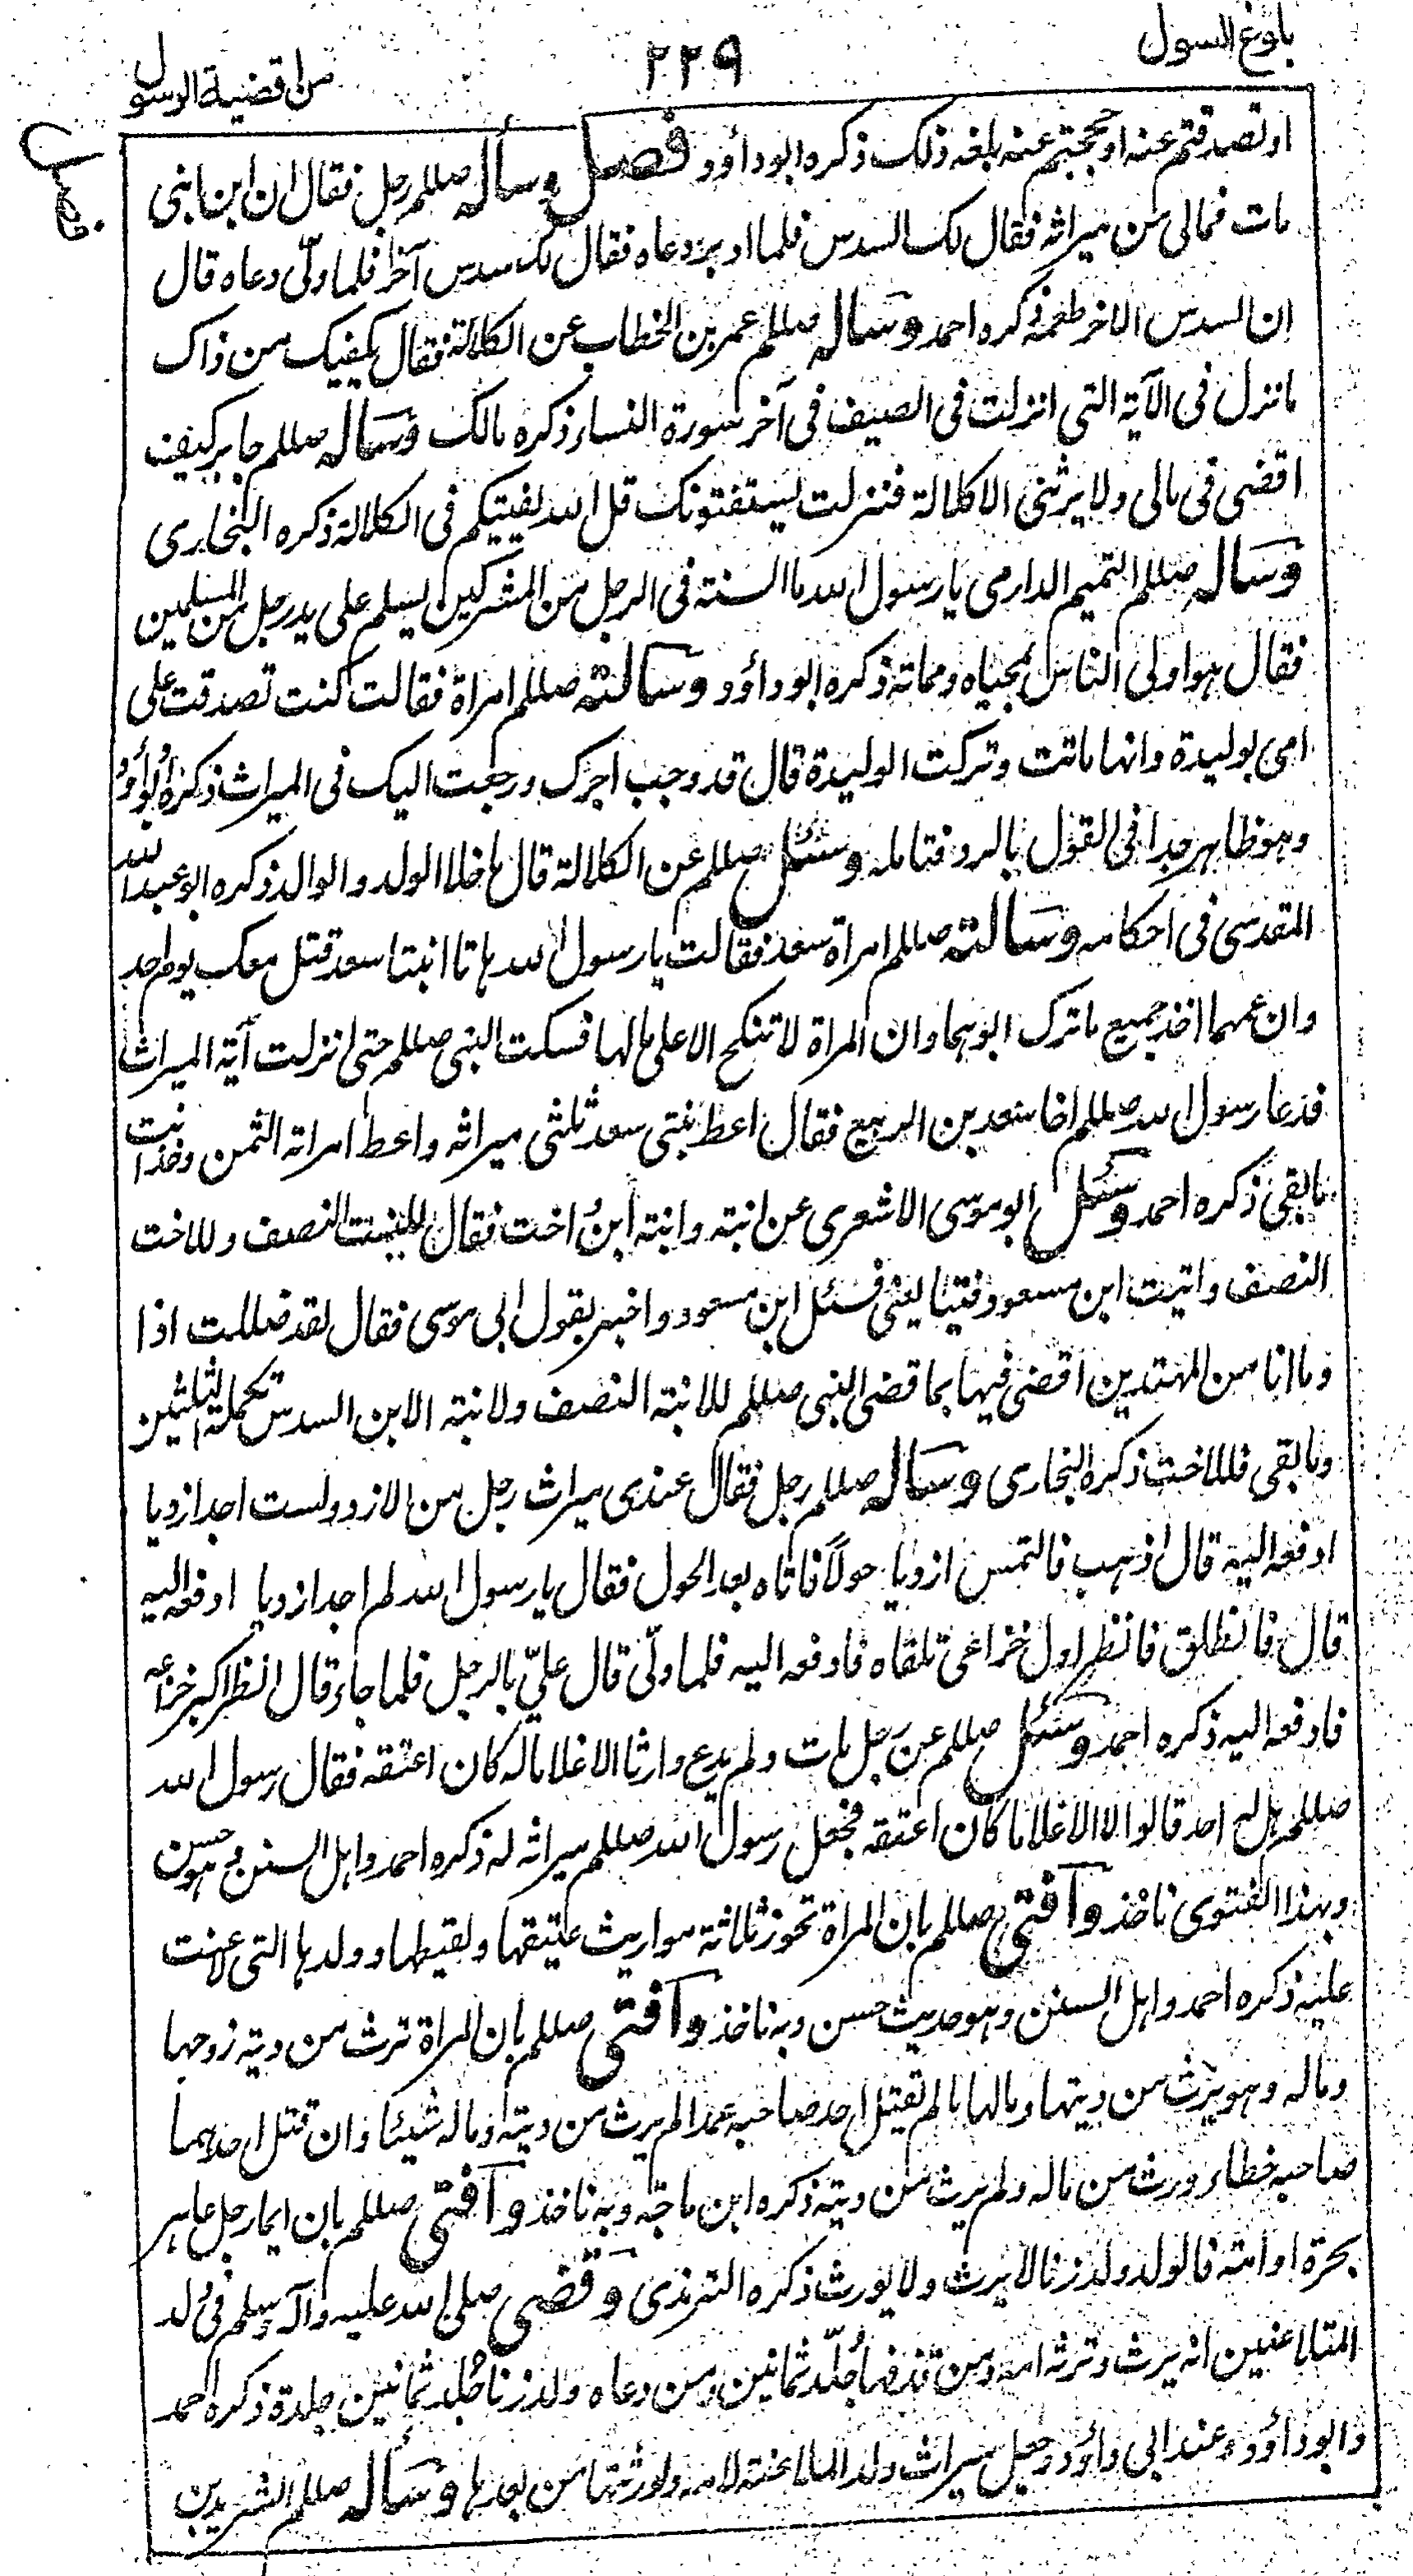 بلوغ السول
٢٢٩
من اقضية الرسول
او تصدقتم عنه او حججتم عنه بلغه ذلك ذكره ابو داؤد فصل وسأله صللم رجل فقال ان ابن ابنى
مات فمالى من ميراثه فقال لك السدس فلما ادبر دعاه فقال لك سدس آخر فلما ولّى دعاه قال
ان السدس الاخر طعمة ذكره احمد وسأله صللم عمر بن الخطاب عن الكلالة فقال يكفيك من ذاك
ما نزل فى الآية التى انزلت فى الصيف فى آخر سورة النساء ذكره مالك وسأله صللم جابر كيف
اقضى فى مالى ولا يرثنى الا كلالة فنزلت يستفتونك قل الله يفتيكم فى الكلالة ذكره البخارى
وسأله صللم التميم الدارمى يا رسول الله ما السنة فى الرجل من المشركين يسلم على يد رجل من المسلمين
فقال هو اولى الناس بمحياه ومماته ذكره ابو داؤد وسألته صللم امراة فقالت كنت تصدقت على
امى بوليدة وانها ماتت وتركت الوليدة قال قد وجب اجرك ورجعت اليك فى الميراث ذكره ابو داؤد
وهو ظاهر جدا فى القول بالرد فتامله وسئل صللم عن الكلالة قال ما خلا الولد والوالد ذكره ابو عبد الله
المقدسى فى احكامه وسألته صللم امراة سعد فقالت يا رسول الله هاتا ابنتا سعد قتل معك يوم احد
وان عمهما اخذ جميع ما ترك ابوهما وان المراة لا تنكح الا على مالها فسكت النبى صللم حتى انزلت آية الميراث
فدعا رسول الله صللم اخا سعد بن الربيع فقال اعط بنتى سعد ثلثى ميراثه واعط امراته الثمن وخذ انت
ما بقى ذكره احمد وسئل ابو موسى الاشعرى عن ابنة وابنة ابن واخت فقال للبنت النصف وللاخت
النصف وائت ابن مسعود فيتابعنى فسئل ابن مسعود واخبر بقول ابى موسى فقال لقد ضللت اذا
وما انا من المهتدين اقضى فيها بما قضى النبى صللم للابنة النصف ولابنة الابن السدس تكملة الثلثين
وما بقى فللاخت ذكره البخارى وسأله صللم رجل فقال عندى ميراث رجل من الازد ولست اجد ازديا
ادفعه اليه قال اذهب فالتمس ازديا حولاً فاتاه بعد الحول فقال يا رسول الله لم اجد ازديا ادفعه اليه
قال فانطلق فانظر اول خزاعى تلقاه فادفعه اليه فلما ولّى قال علىّ بالرجل فلما جاء قال انظر اكبر خزاعه
فادفعه اليه ذكره احمد وسئل صللم عن رجل مات ولم يدع وارثا الا غلاما له كان اعتقه فقال رسول الله
صللم هل له احد قالوا لا الا غلاما كان اعتقه فجعل رسول الله صللم ميراثه له ذكره احمد واهل السنن وهو حسن
وبهذا الفتوى ناخذ وأفتى صللم بان المراة تحوز ثلاثة مواريث عتيقها ولقيطها وولدها التى لاعنت
عليه ذكره احمد واهل السنن وهو حديث حسن وبه ناخذ وأفتى صللم بان المراة ترث من دية زوجها
وماله وهو يرث من ديتها ومالها ما لم يقتل احد صاحبه عمدا لم يرث من ديته وماله شيئا وان قتل احدهما
صاحبه خطاء ورث من ماله ولم يرث من ديته ذكره ابن ماجة وبه ناخذ وأفتى صللم بان ايما رجل عاهر
بحرة او امة فالولد ولد زنا لا يرث ولا يورث ذكره الترمذى وقضى صلى الله عليه وآله وسلم فى ولد
المتلاعنين انه يرث وترثه امه ومن قذفها جُلد ثمانين ومن دعاه ولد زنا جُلد ثمانين جلدة ذكره احمد
وابو داؤد وعند ابى داؤد وجعل ميراث ولد الملاعنة لامه ولورثتها من بعدها وسأله صللم الشريد بن